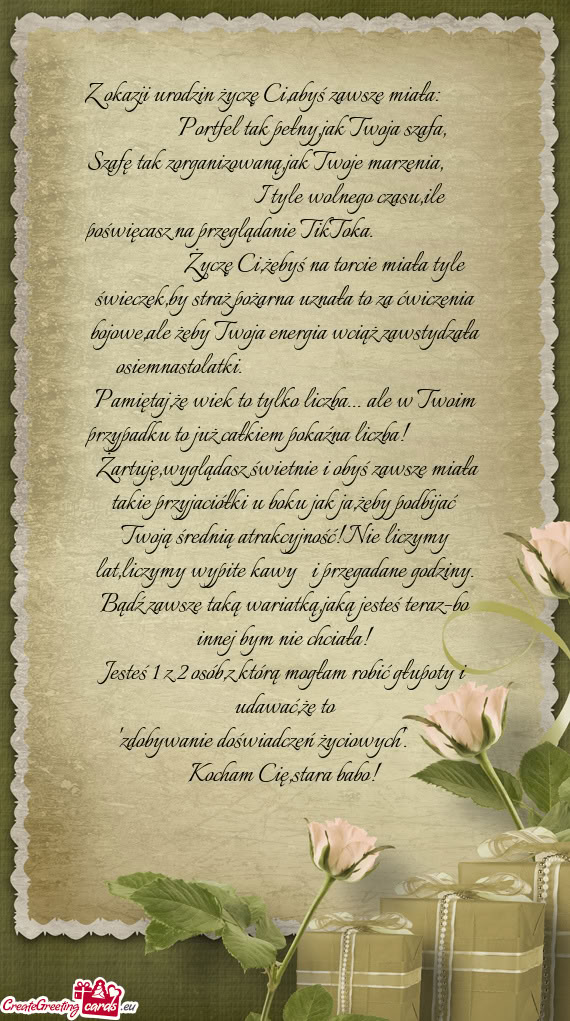 Z okazji urodzin życzę Ci,abyś zawsze miała:
Portfel tak pełny,jak Twoja szafa,
Szafę tak zorganizowaną,jak Twoje marzenia,
I tyle wolnego czasu,ile
poświęcasz na przeglądanie TikToka.
Życzę Ci,żebyś na torcie miała tyle
świeczek,by straż pożarna uznała to za ćwiczenia
bojowe,ale żeby Twoja energia wciąż zawstydzała
osiemnastolatki.
Pamiętaj,że wiek to tylko liczba... ale w Twoim
przypadku to już całkiem pokaźna liczba!
Żartuję,wyglądasz świetnie i obyś zawsze miała
takie przyjaciółki u boku jak ja,żeby podbijać
Twoją średnią atrakcyjność!Nie liczymy
lat,liczymy wypite kawy i przegadane godziny.
Bądź zawsze taką wariatką,jaką jesteś teraz-bo
innej bym nie chciała!
Jesteś 1 z 2 osób,z którą mogłam robić głupoty i
udawać,że to
'zdobywanie doświadczeń życiowych'.
Kocham Cię,stara babo!
CreateGreeting cards .eu